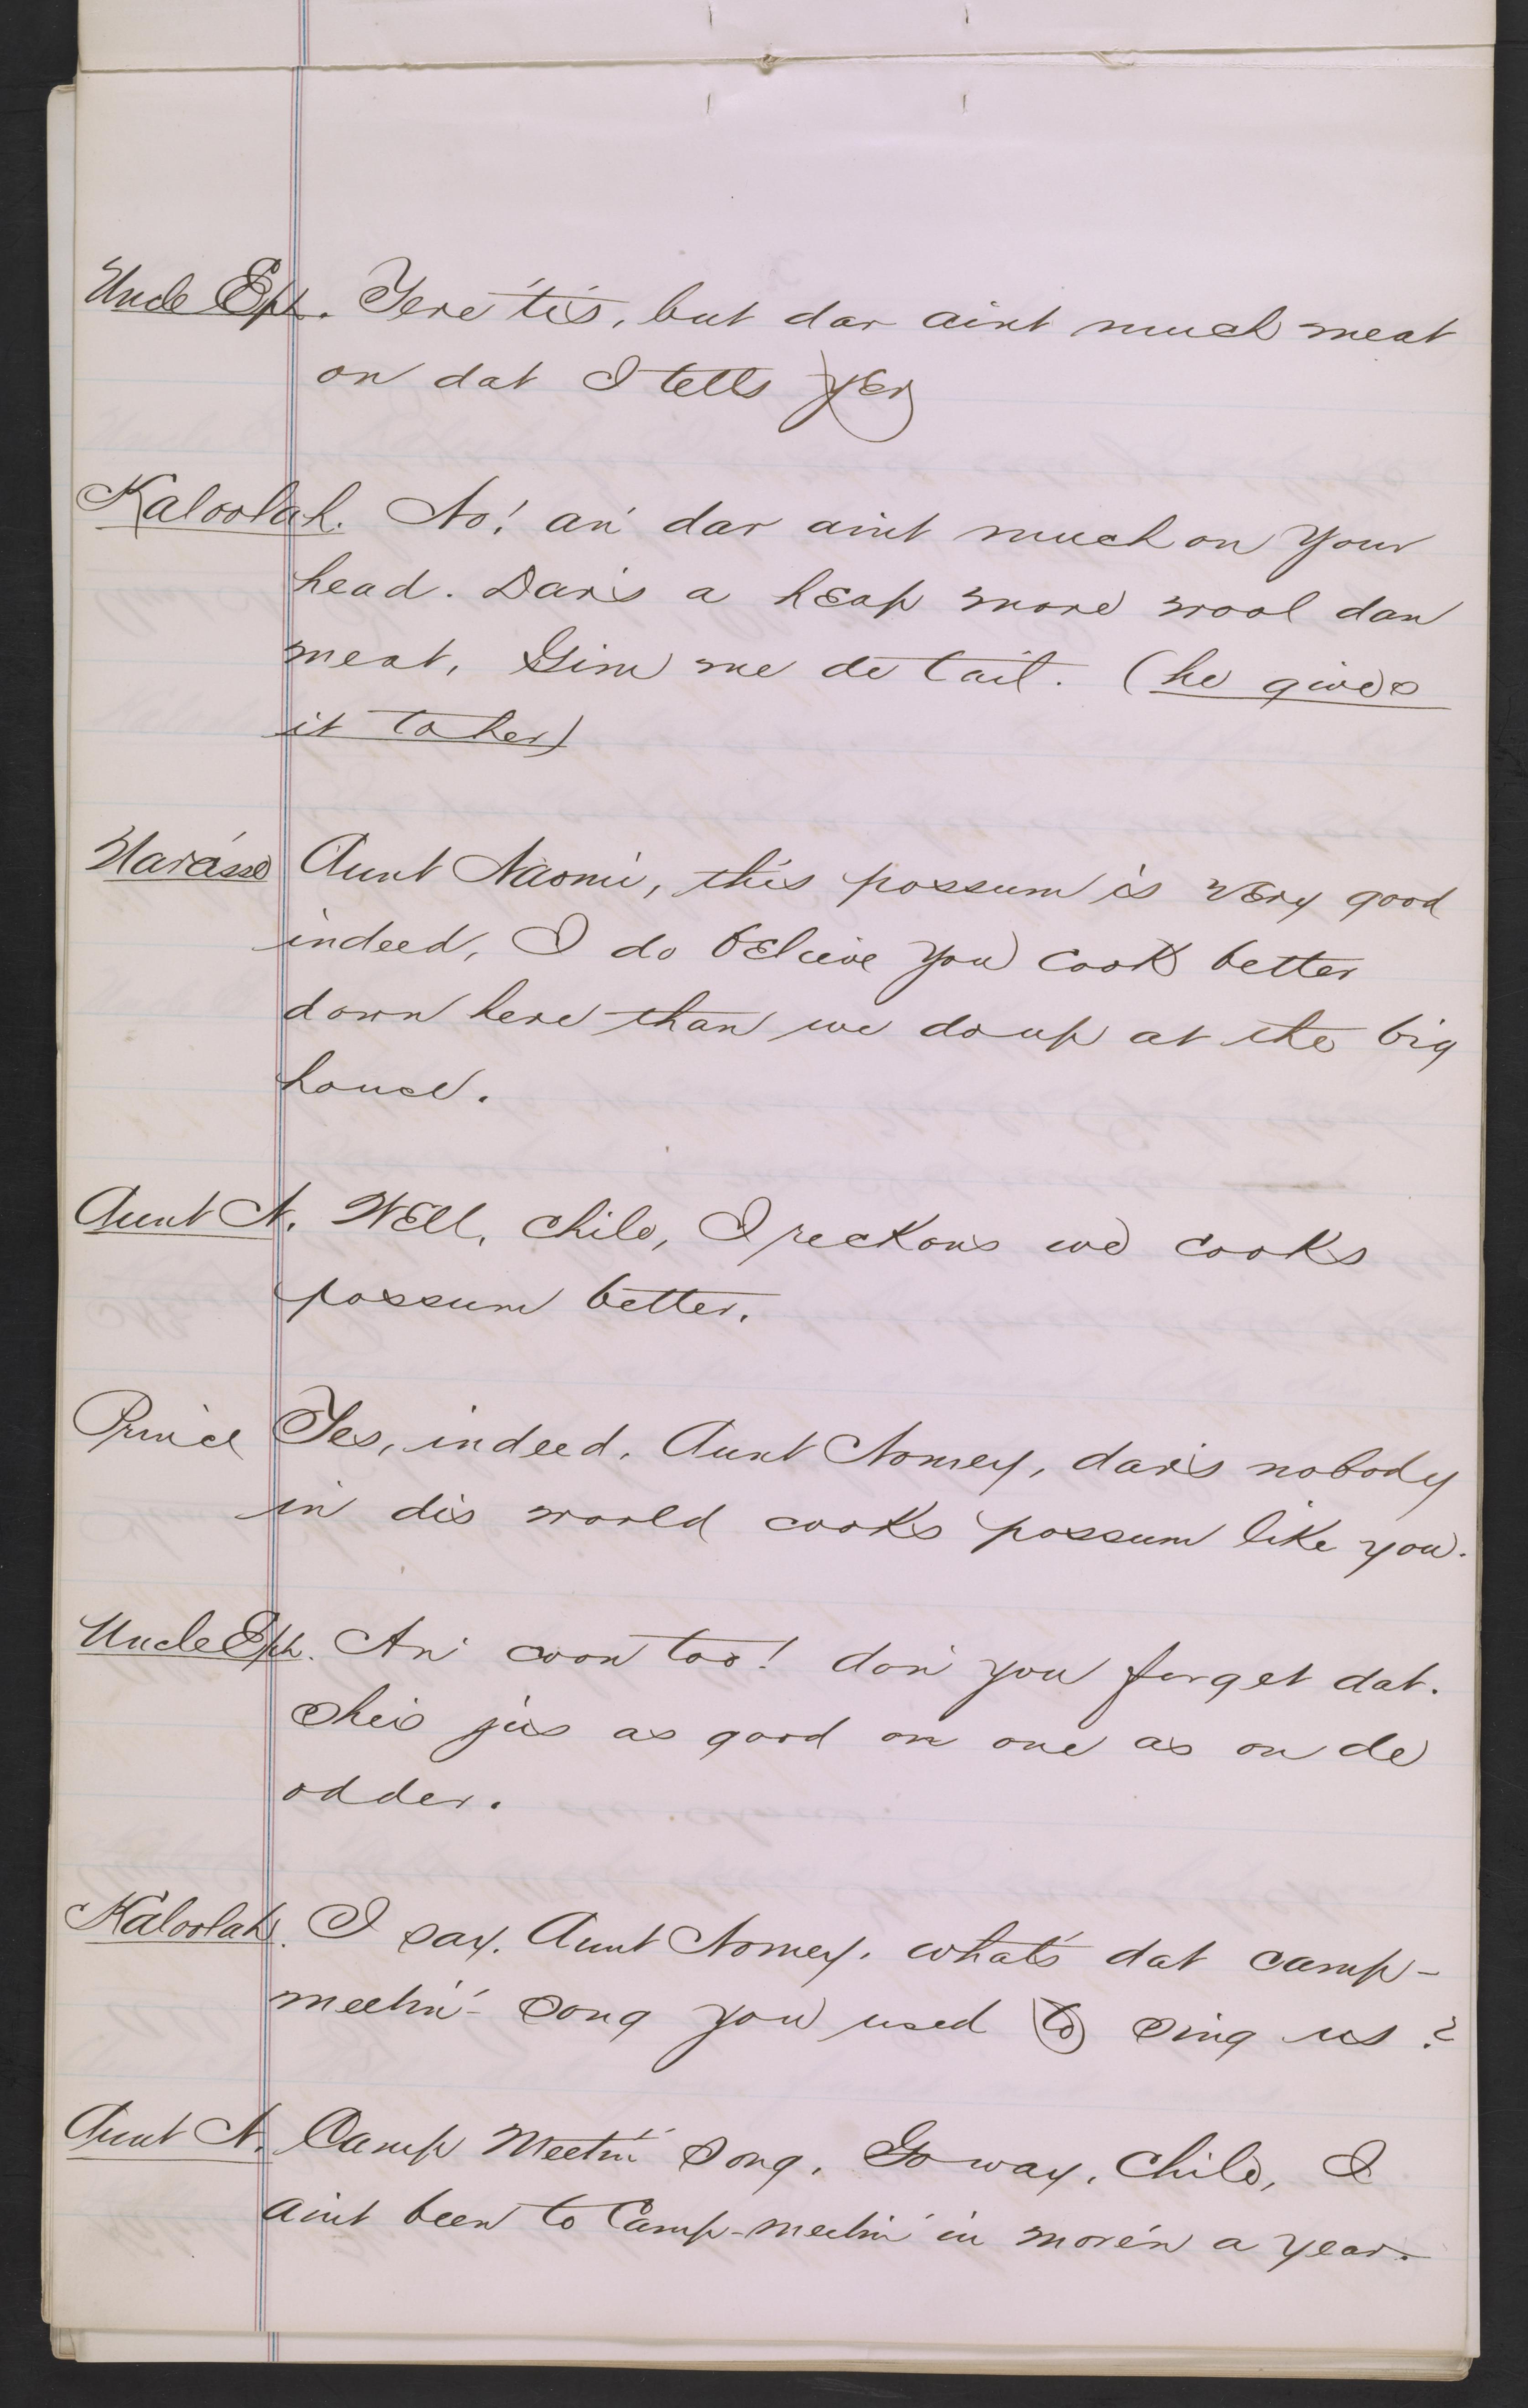 Uncle Eph. Yere 'tis, but dar aint much meat
on dat I tells yer
Kaloolah. No! an' dar aint much on your
head. Dar's a heap more wool dan
meat, Gim me de tail. (he gives
it to her)
Marásse Aunt Naomi, this possum is very good
indeed, I do believe you cook better
down here than we do up at the big
house.
Aunt N. Well, chile, I reckons we cooks
possum better.
Prince Yes, indeed. Aunt Nomey, dar's nobody
in dis world cooks possum like you.
Uncle Eph. An' coon too! don' you forget dat.
She's jis as good on one as on de
odder.
Kaloolah. I say. Aunt Nomey. what's dat camp-
meetin'- song you used to sing us?
Aunt N. Camp Meetin' Song. Go way. Chile, I
aint been to Camp-meetin' in more'n a year.